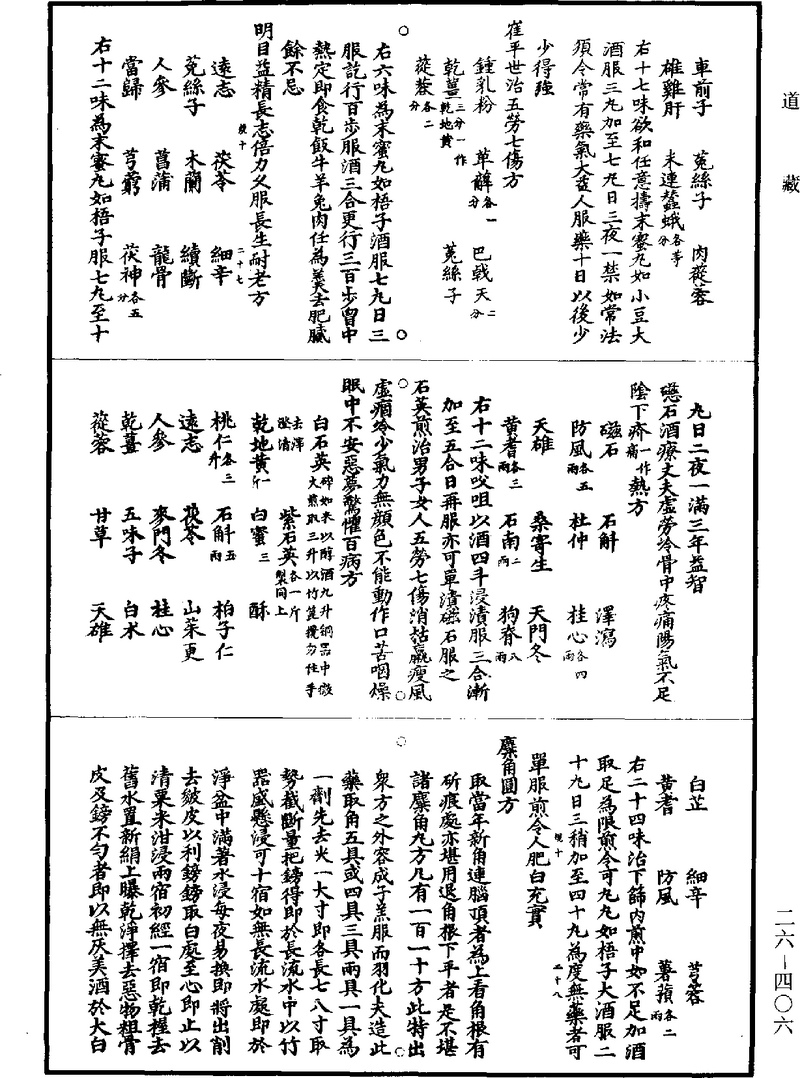 道藏
車前子 菟絲子 肉蓯蓉
雄雞肝 未連蠶蛾各等分
右十七味欲和任意擣末蜜丸如小豆大
酒服三丸加至七丸日三夜一禁如常法
須令常有藥氣大益人服藥十日以後少
少得強
崔平世治五勞七傷方
鍾乳粉 萆薢各一分 巴戟天二分
乾薑三分一作乾地黄 菟絲子
蓯蓉各二分
右六味為末蜜丸如梧子酒服七丸日三
服訖行百步服酒三合更行三百步留中
熱定即食乾飯牛羊兔肉任為羹去肥膩
餘不忌
明目益精長志倍力久服長生耐老方
遠志 茯苓 細辛
菟絲子 木蘭 續斷
人參 菖蒲 龍骨
當歸 芎藭 茯神各五分
號十 二十七
右十二味為末蜜丸如梧子服七丸至十
九日二夜一滿三年益智
磁石酒療丈夫虛勞冷骨中疼痛陽氣不足
陰下痒一作痛熱方
磁石 石斛 澤瀉
防風各五兩 杜仲 桂心各四兩
天雄 桑寄生 天門冬
黄耆各三兩 石南二兩 狗脊八兩
右十二味㕮咀以酒四斗浸漬服三合漸
加至五合日再服亦可單漬磁石服之
石英煎治男子女人五勞七傷消枯羸瘦風
虛痼冷少氣力無顔色不能動作口苦咽燥
眠中不安惡夢驚懼百病方
白石英碎如米以醇酒九升銅器中微火煎取三升以竹篦攪勿住手去滓澄清 紫石英各一斤製同上
乾地黄一斤 白蜜三 酥
桃仁各三升 石斛五兩 柏子仁
遠志 茯苓 山茱更
人參 麥門冬 桂心
乾薑 五味子 白术
蓯蓉 甘草 天雄
白芷 細辛 芎蓉
黄耆 防風 薯蕷各二兩
右二十四味治下篩內煎中如不足加酒
取足為限煎令可丸丸如梧子大酒服二
十九日三稍加至四十丸為度無藥者可
單服煎令人肥白充實
號十 二十八
麋角圓方
取當年新角連腦頂者為上看角根有
斫痕處亦堪用退角根下平者是不堪
諸麋角丸方凡有一百一十方此特出
衆方之外容成子羔服而羽化夫造此
藥取角五具或四具三具兩具一具為
一劑先去尖一大寸即各長七八寸取
勢截斷量把鎊得即於長流水中以竹
器盛懸浸可十宿如無長流水處即於
淨盆中滿著水浸每夜易換即將出削
去皴皮以利鎊鎊取白處至心即止以
清粟米泔浸兩宿初經一宿即乾握去
舊水置新絹上曝乾淨擇去惡物粗骨
皮及鎊不勻者即以無灰美酒於大白
二六—四〇六